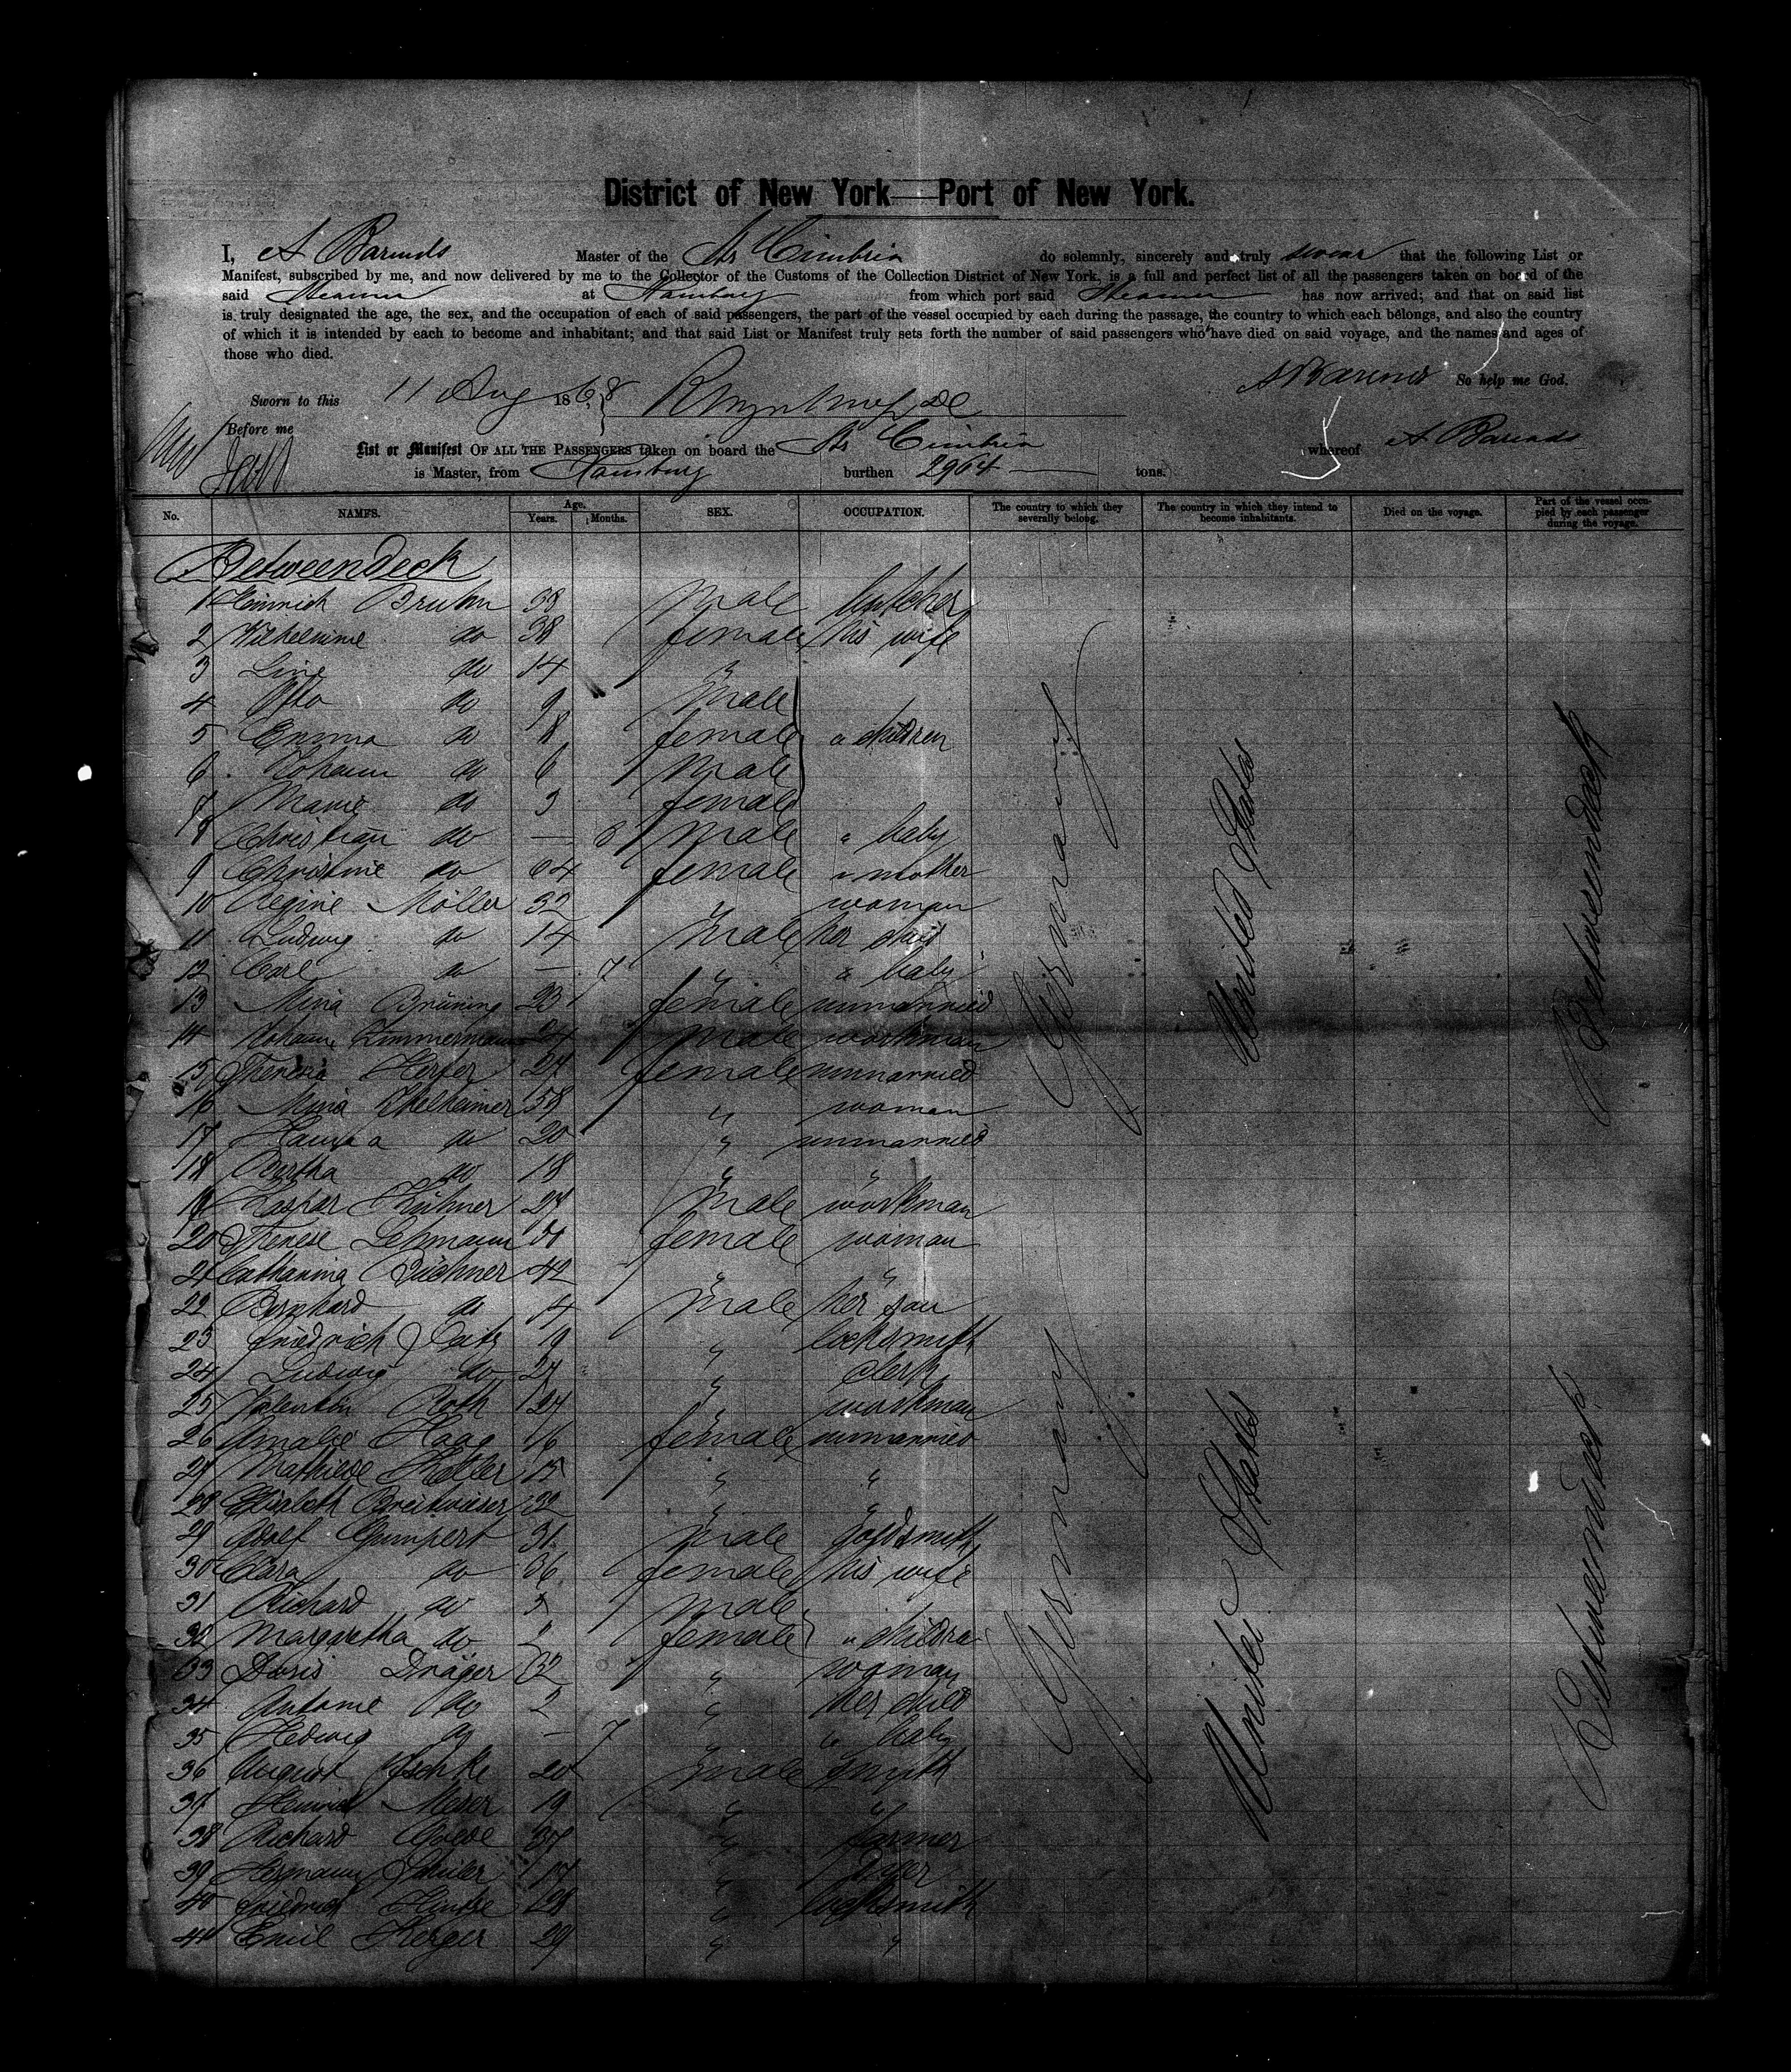 District of New York—Port of New York.
I, A Barends Master of the Str Cimbria do solemnly, sincerely and truly swear that the following List or
Manifest, subscribed by me, and now delivered by me to the Collector of the Customs of the Collection District of New York, is a full and perfect list of all the passengers taken on board of the
said Steamer at Hamburg from which port said Steamer has now arrived; and that on said list
is truly designated the age, the sex, and the occupation of each of said passengers, the part of the vessel occupied by each during the passage, the country to which each belongs, and also the country
of which it is intended by each to become and inhabitant; and that said List or Manifest truly sets forth the number of said passengers who have died on said voyage, and the names and ages of
those who died.
A Barends So help me God.
Sworn to this 11 Aug 1868
Before me
List or Manifest OF ALL THE PASSENGERS taken on board the Str Cimbria whereof A Barends
is Master, from Hamburg burthen 2964 tons.
No. NAMES. Age. Years. Months. SEX. OCCUPATION. The country to which they severally belong. The country in which they intend to become inhabitants. Died on the voyage. Part of the vessel occupied by each passenger during the voyage.
Betweendeck
1 Heinrich Bruhn 38 male butcher
2 Wilhelmine do 38 female his wife
3 Line do 14 "
4 Otto do 9 male
5 Emma do 8 female " children
6 Johann do 6 male
7 Marie do 3 female
8 Christian do — male " baby
9 Christine do 64 female " mother
10 Regine Möller 32 " woman
11 Ludwig do 14 male her child
12 Carl do — 7 " " baby
13 Mina Brüning 23 female unmarried
14 Johann Zimmermann 24 male workman
15 Theresia 24 female unmarried
16 Mina 58 " woman
17 Hanna do 20 " unmarried
18 Bertha do 18 " "
19 Kaspar Kühner 27 male workman
20 Therese Lehmann female woman
21 Catharina Büchner 42 " "
22 Bernhard do 14 male her son
23 Friedrich 19 " locksmith
24 Ludwig do 27 " clerk
25 Valentin Roth 24 " workman
26 Amalie Haag 16 female unmarried
27 Mathilde 15 " "
28 Elisabeth Breitwieser 22 " "
29 Adolf Gumpert 31 male goldsmith
30 Clara do 36 female his wife
31 Richard do male
32 Margaretha do female " children
33 Doris Dräger 32 " woman
34 Antonie do 2 " her child
35 Hedwig do — 7 " baby
36 August male smyth
37 Heinrich Meier 19 " "
38 Richard 37 " farmer
39 Hermann " dyer
40 Friedrich 28 " locksmith
41 Emil Kerger 29 " "
Germany
United States
Betweendeck
Germany
United States
Betweendeck